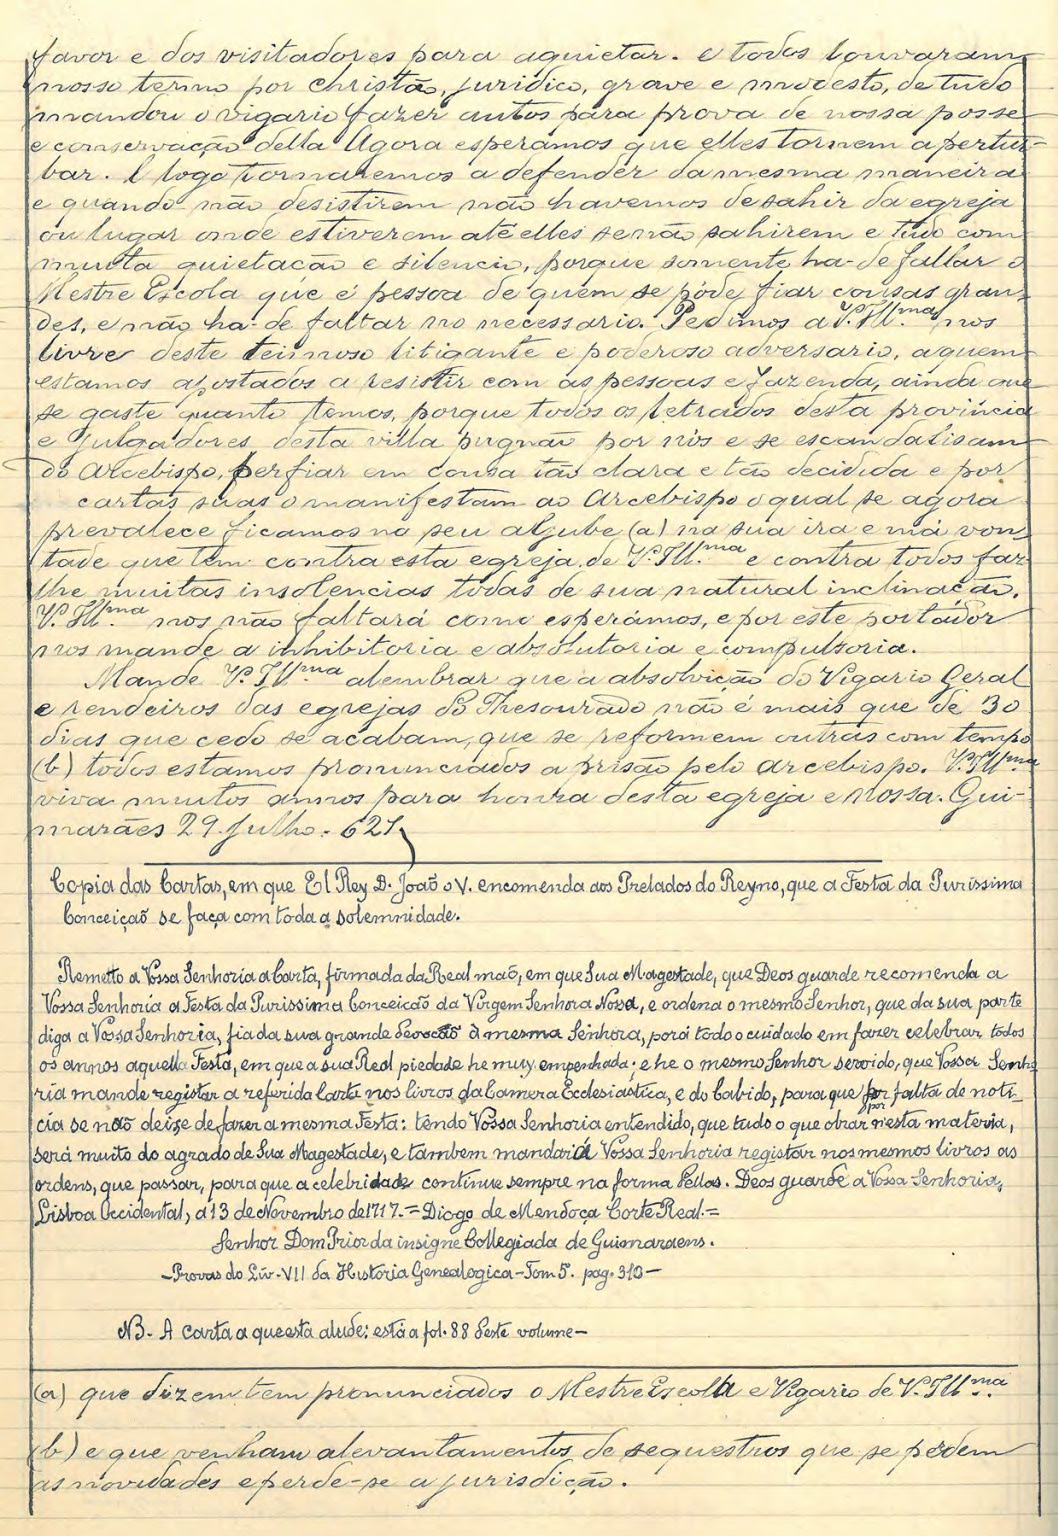 favor e dos visitadores para aquietar. e todos louvaram
nosso termo por christão, juridico, grave e modesto, de tudo
mandou o vigario fazer autos para prova de nossa posse
e conservação della Agora esperamos que elles tornem a pertur-
bar. E logo tornaremos a defender da mesma maneira
e quando não desistirem não havemos de sahir da egreja
ou lugar onde estiverem até elles se não sahirem e tudo com
muita quietação e silencio, porque somente ha-de fallar o
Mestre Escola que é pessoa de quem se póde fiar cousas gran-
des, e não ha-de faltar no necessario. Pedimos a V. Ill.ma nos
livre deste teimoso litigante e poderoso adversario, a quem
estamos apostados a resistir com as pessoas e fazenda, ainda que
se gaste quanto temos, porque todos os letrados desta provincia
e julgadores desta villa pugnão por nós e se escandalisam
do Arcebispo, perfiar em cousa tão clara e tão decidida e por
cartas suas o manifestam ao Arcebispo o qual se agora
prevalece ficamos no seu aljube (a) na sua ira e má von-
tade que tem contra esta egreja de V. Ill.ma e contra todos far-
lhe muitas insolencias todas de sua natural inclinação.
V. Ill.ma nos não faltará como esperámos, e por este portador
nos mande a inhibitoria e absolutoria e compulsoria.
Mande V. Ill.ma alembrar que a absolvição do Vigario Geral
e rendeiros das egrejas do Thesourado não é mais que de 30
dias que cedo se acabam, que se reformem outras com tempo
(b) todos estamos pronunciados a prisão pelo arcebispo. V. Ill.ma
viva muitos annos para honra desta egreja e nossa. Gui-
marães 29 Julho. 621
Copia das Cartas, em que El Rey D. João o V. encomenda aos Prelados do Reyno, que a Festa da Purissima
Conceição se faça com toda a solemnidade.
Remetto a Vossa Senhoria a Carta, firmada da Real mão, em que Sua Magestade, que Deos guarde recomenda a
Vossa Senhoria a Festa da Purissima Conceicão da Virgem Senhora Nossa, e ordena o mesmo Senhor, que da sua parte
diga a Vossa Senhoria, fia da sua grande devocão à mesma Senhora, porá todo o cuidado em fazer celebrar todos
os annos aquella Festa, em que a sua Real piedade he muy empenhada; e he o mesmo Senhor servido, que Vossa Senho
ria mande registar a referida Carta nos livros da Camera Ecclesiastica, e do Cabido, para que por falta de noti_
cia se não deixe de fazer a mesma Festa: tendo Vossa Senhoria entendido, que tudo o que obrar nesta materia,
será muito do agrado de Sua Magestade, e tambem mandará Vossa Senhoria registar nos mesmos livros as
ordens, que passar, para que a celebridade continue sempre na forma dellas. Deos guarde a Vossa Senhoria,
Lisboa Occidental, a 13 de Novembro de 1717.= Diogo de Mendoça Corte Real.=
Senhor Dom Prior da insigne Collegiada de Guimaraens.
-Provas do Liv. VII da Historia Genealogica-Tom 5. pag. 310-
NB- A carta a que esta alude: está a fol. 88 deste volume-
(a) que dizem tem pronunciados o Mestre Escolla e Vigario de V. Ill.ma
(b) e que venham alevantamentos de sequestros que se pódem
as novidades e perde-se a jurisdição.